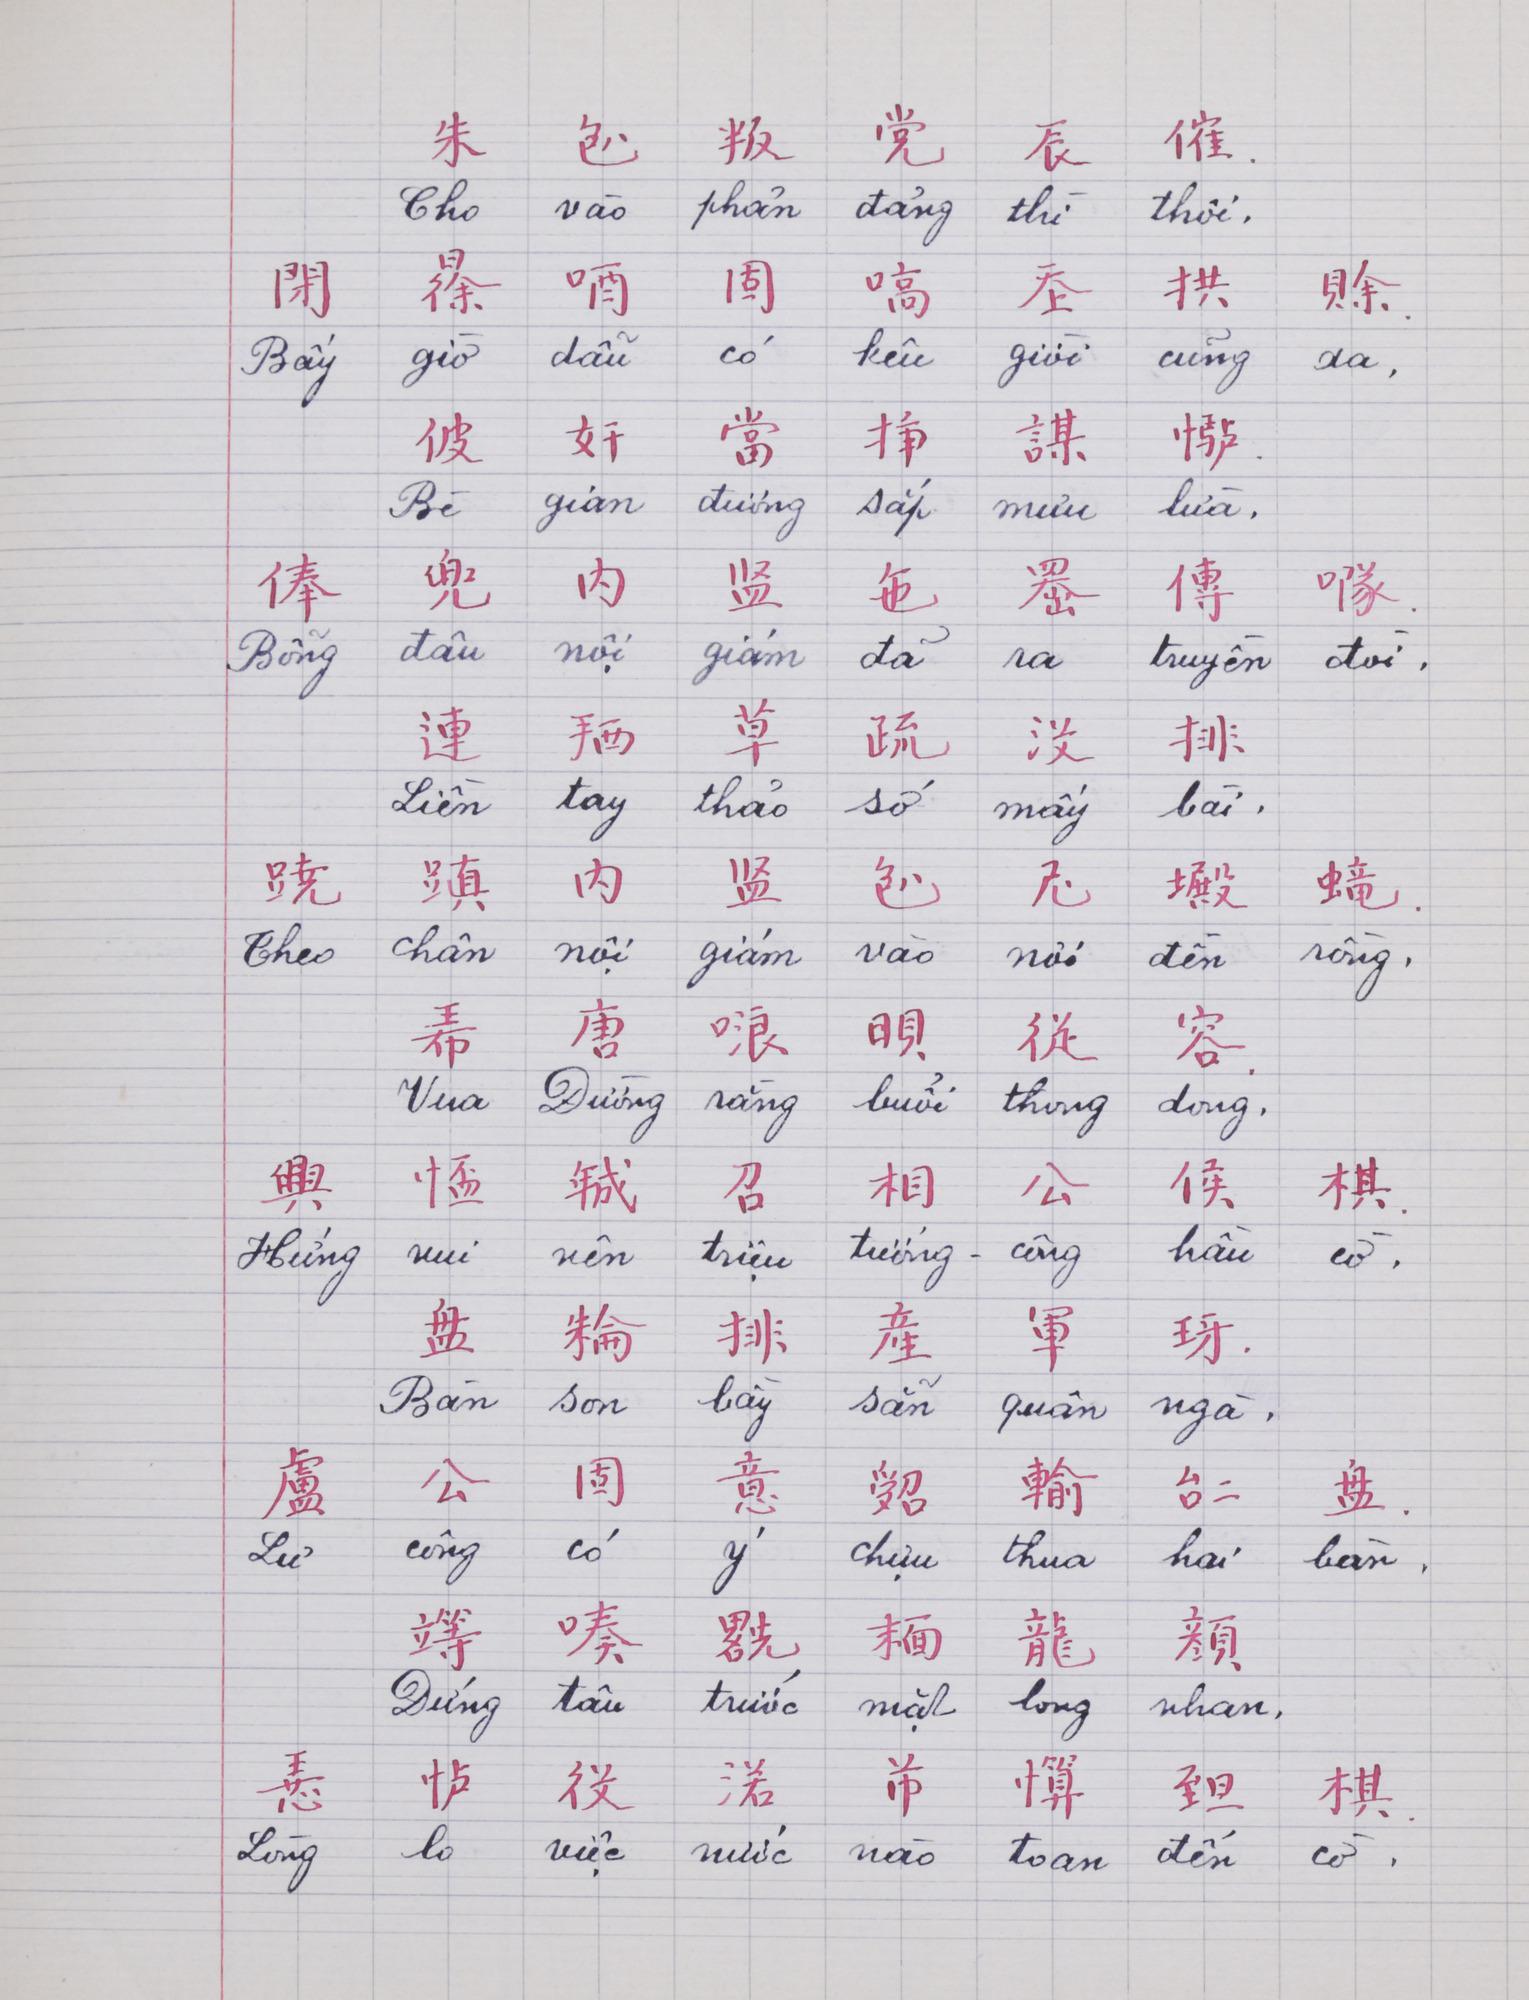 朱 𠓨 叛 党 辰 催.
Cho vào phản đảng thì thôi,
閉 𣇞 唒 固 嗃 𡗶 拱 賒.
Bấy giờ dẫu có kêu giời cũng xa,
彼 奸 當 揷 謀 𢤇.
Bè gian đương sắp mưu lừa,
俸 兜 内 监 㐌 𦋦 傳 㘂.
Bỗng đâu nội giám đã ra truyền đòi,
連 𢬣 草 疏 𠬃 排
Liền tay thảo sớ mấy bài,
蹺 蹎 内 监 𠓨 尼 殿 𧏵.
Theo chân nội giám vào nơi đền rồng,
𢂜 唐 哴 𣇜 從 容.
Vua Đường rằng buổi thong dong,
興 𢝙 𢧚 召 相 公 候 棋.
Hứng vui nên triệu tướng - công hầu cờ,
盘 𣘈 排 産 軍 玡.
Bàn son bầy sẵn quân ngà,
盧 公 固 意 𠹾 輸 𠄩 盘.
Lư công có ý chịu thua hai bàn,
𨅸 奏 𠓀 𩈘 龍 顔
Đứng tâu trước mặt long nhan,
𢚸 𢗼 役 渃 芾 𢥈 𦤾 棋.
Lòng lo việc nước nào toan đến cờ,